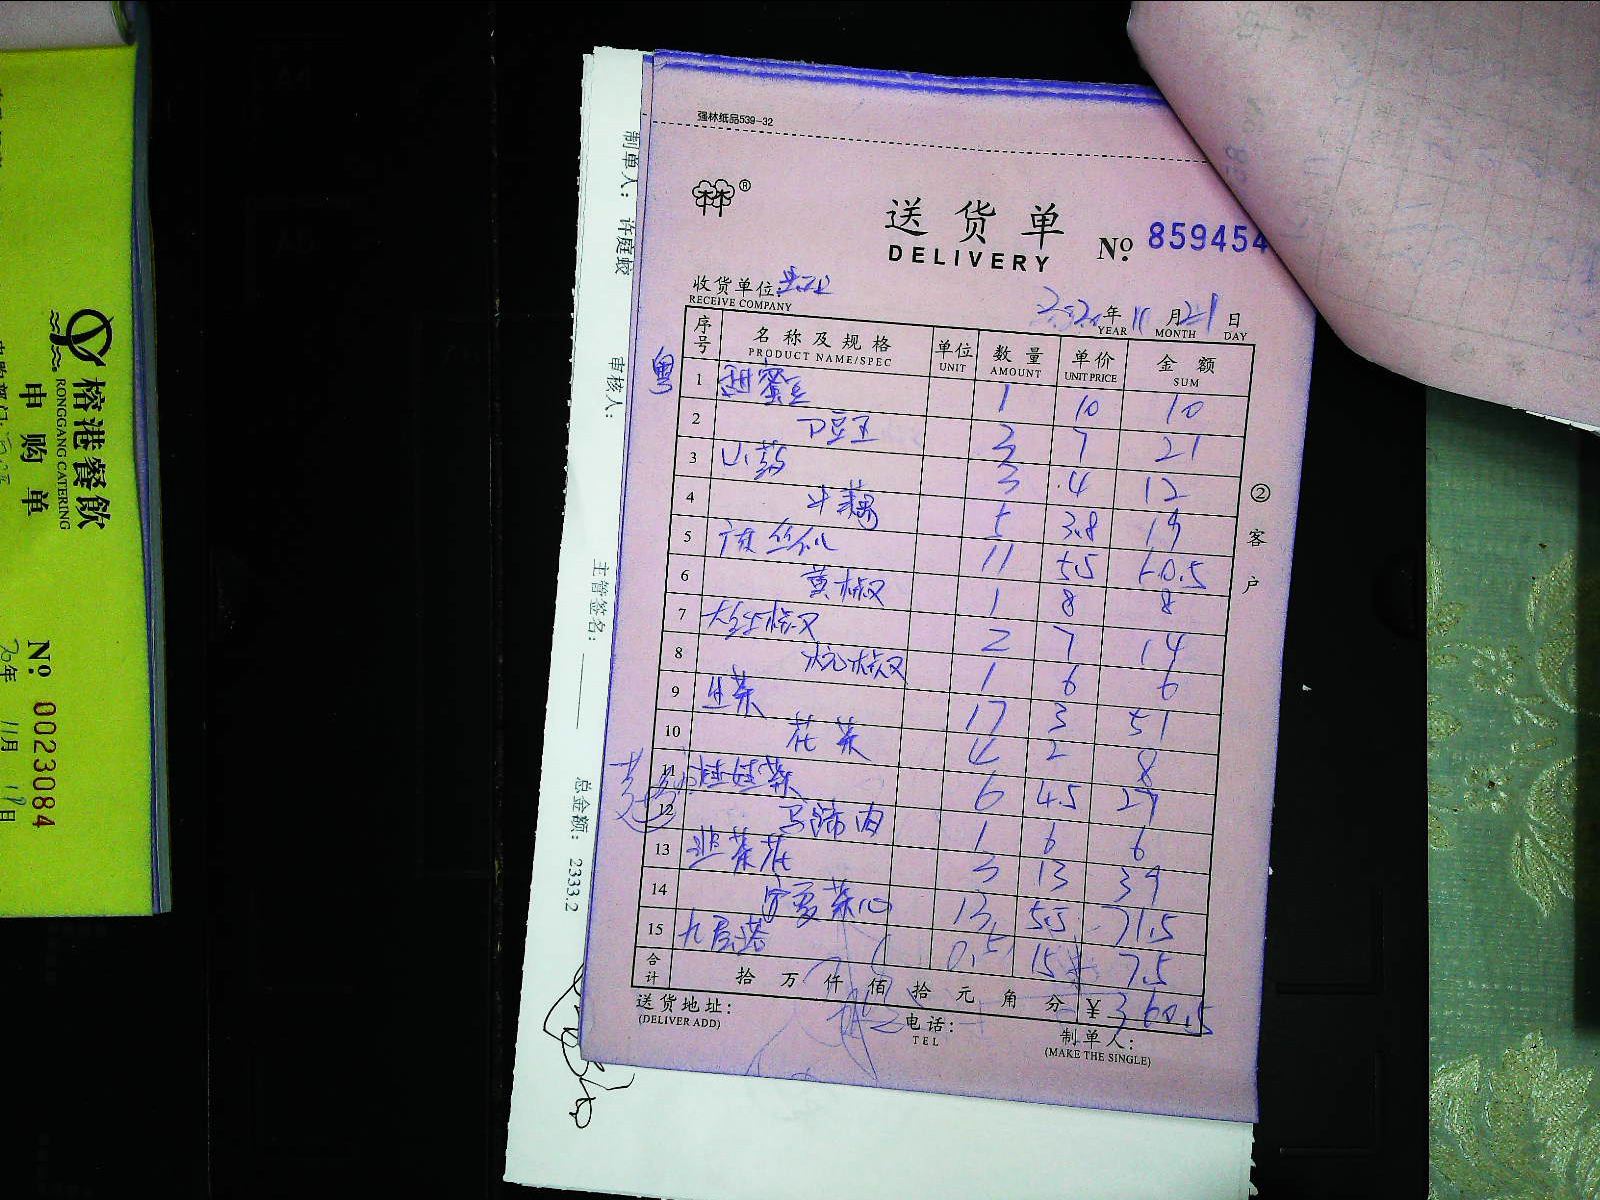 强林纸品539-32
®
送货单
DELIVERY
№ 859454
收货单位:
RECEIVE COMPANY
年 11 月 21 日
YEAR MONTH DAY
序号 名称及规格 单位 数量 单价 金额
PRODUCT NAME/SPEC UNIT AMOUNT UNIT PRICE SUM
粤
1 甜蜜豆 1 10 10
2 豆王 3 7 21
3 山药 3 4 12
4 藕 5 3.8 19
5 丝瓜 11 5.5 60.5
6 黄椒 1 8 8
7 大红椒 2 7 14
8 杭椒 1 6 6
9 生菜 17 3 51
10 花菜 4 2 8
11 娃娃菜 6 4.5 27
12 马蹄肉 1 6 6
13 韭菜花 3 13 39
14 宁夏菜心 13 5.5 71.5
15 九层塔 0.5 15 7.5
合计 拾 万 仟 佰 拾 元 角 分 ¥ 360.5
送货地址:
(DELIVER ADD)
电话:
TEL
制单人:
(MAKE THE SINGLE)
②客户
制单人: 许庭蛟
审核人:
主管签名:
总金额: 2333.2
榕港餐飲
RONGGANG CATERING
申购单
№ 0023084
20年 11月 19日